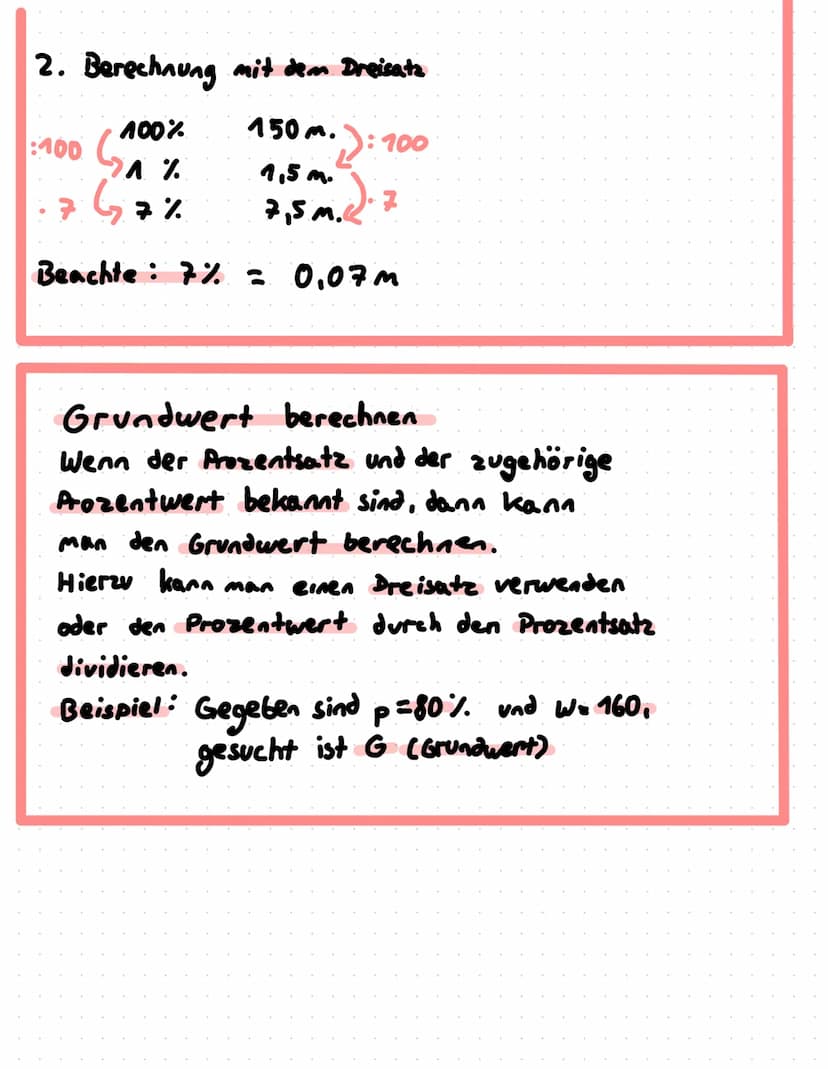 2. Berechnung mit dem Dreisatz
100% 150 m.
:100 :100
1 % 1,5 m.
· 7 7 % 7,5 m. · 7
Beachte: 7% = 0,07m
Grundwert berechnen
Wenn der Prozentsatz und der zugehörige
Prozentwert bekannt sind, dann kann
man den Grundwert berechnen.
Hierzu kann man einen Dreisatz verwenden
oder den Prozentwert durch den Prozentsatz
dividieren.
Beispiel: Gegeben sind p=80% und W=160,
gesucht ist G (Grundwert)